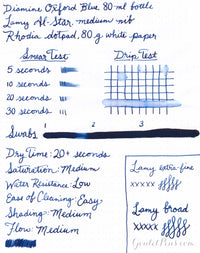 Diamine Oxford Blue 80 ml bottle
Lamy Al-Star, medium nib
Rhodia dotpad, 80 g white paper
Smear Test
Drip Test
5 seconds
10 seconds
20 seconds
30 seconds
Swabs
2
3
Dry Time: 20+ seconds
Saturation: Medium
Water Resistance: Low
Ease of Cleaning: Easy
Shading: Medium
Flow: Medium
Lamy extra-fine
xxxxx
Lamy broad
xxxxx
GouletPens.com